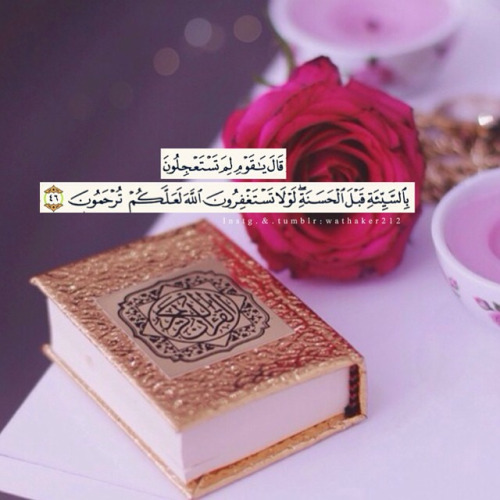 قَالَ يَـٰقَوْمِ لِمَ تَسْتَعْجِلُونَ
بِٱلسَّيِّئَةِ قَبْلَ ٱلْحَسَنَةِ ۖ لَوْلَا تَسْتَغْفِرُونَ ٱللَّهَ لَعَلَّكُمْ تُرْحَمُونَ ٤٦
Instg.&.tumblr:wathaker212
القرآن الكريم